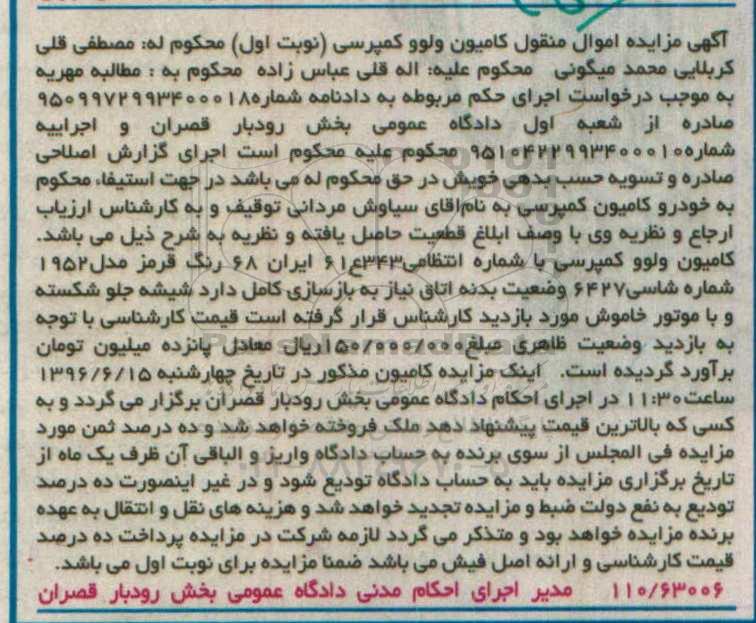 آگهی مزایده اموال منقول کامیون ولوو کمپرسی (نوبت اول) محکوم له: مصطفی قلی
کربلایی محمد میگونی محکوم علیه: اله قلی عباس زاده محکوم به : مطالبه مهریه
به موجب درخواست اجرای حکم مربوطه به دادنامه شماره۹۵۰۹۹۷۲۹۹۳۴۰۰۰۱۸
صادره از شعبه اول دادگاه عمومی بخش رودبار قصران و اجراییه
شماره۹۵۱۰۴۲۲۹۹۳۴۰۰۰۱۰ محکوم علیه محکوم است اجرای گزارش اصلاحی
صادره و تسویه حسب بدهی خویش در حق محکوم له می باشد در جهت استیفاء محکوم
به خودرو کامیون کمپرسی به نام‌اقای سیاوش مردانی توقیف و به کارشناس ارزیاب
ارجاع و نظریه وی با وصف ابلاغ قطعیت حاصل یافته و نظریه به شرح ذیل می باشد.
کامیون ولوو کمپرسی با شماره انتظامی۳۴۳ع۶۱ ایران ۶۸ رنگ قرمز مدل۱۹۵۲
شماره شاسی۶۴۲۷ وضعیت بدنه اتاق نیاز به بازسازی کامل دارد شیشه جلو شکسته
و با موتور خاموش مورد بازدید کارشناس قرار گرفته است قیمت کارشناسی با توجه
به بازدید وضعیت ظاهری مبلغ۱۵۰/۰۰۰/۰۰۰ریال معادل پانزده میلیون تومان
برآورد گردیده است. اینک مزایده کامیون مذکور در تاریخ چهارشنبه ۱۳۹۶/۶/۱۵
ساعت۱۱:۳۰ در اجرای احکام دادگاه عمومی بخش رودبار قصران برگزار می گردد و به
کسی که بالاترین قیمت پیشنهاد دهد ملک فروخته خواهد شد و ده درصد ثمن مورد
مزایده فی المجلس از سوی برنده به حساب دادگاه واریز و الباقی آن ظرف یک ماه از
تاریخ برگزاری مزایده باید به حساب دادگاه تودیع شود و در غیر اینصورت ده درصد
تودیع به نفع دولت ضبط و مزایده تجدید خواهد شد و هزینه های نقل و انتقال به عهده
برنده مزایده خواهد بود و متذکر می گردد لازمه شرکت در مزایده پرداخت ده درصد
قیمت کارشناسی و ارائه اصل فیش می باشد ضمنا مزایده برای نوبت اول می باشد.
۱۱۰/۶۳۰۰۶ مدیر اجرای احکام مدنی دادگاه عمومی بخش رودبار قصران